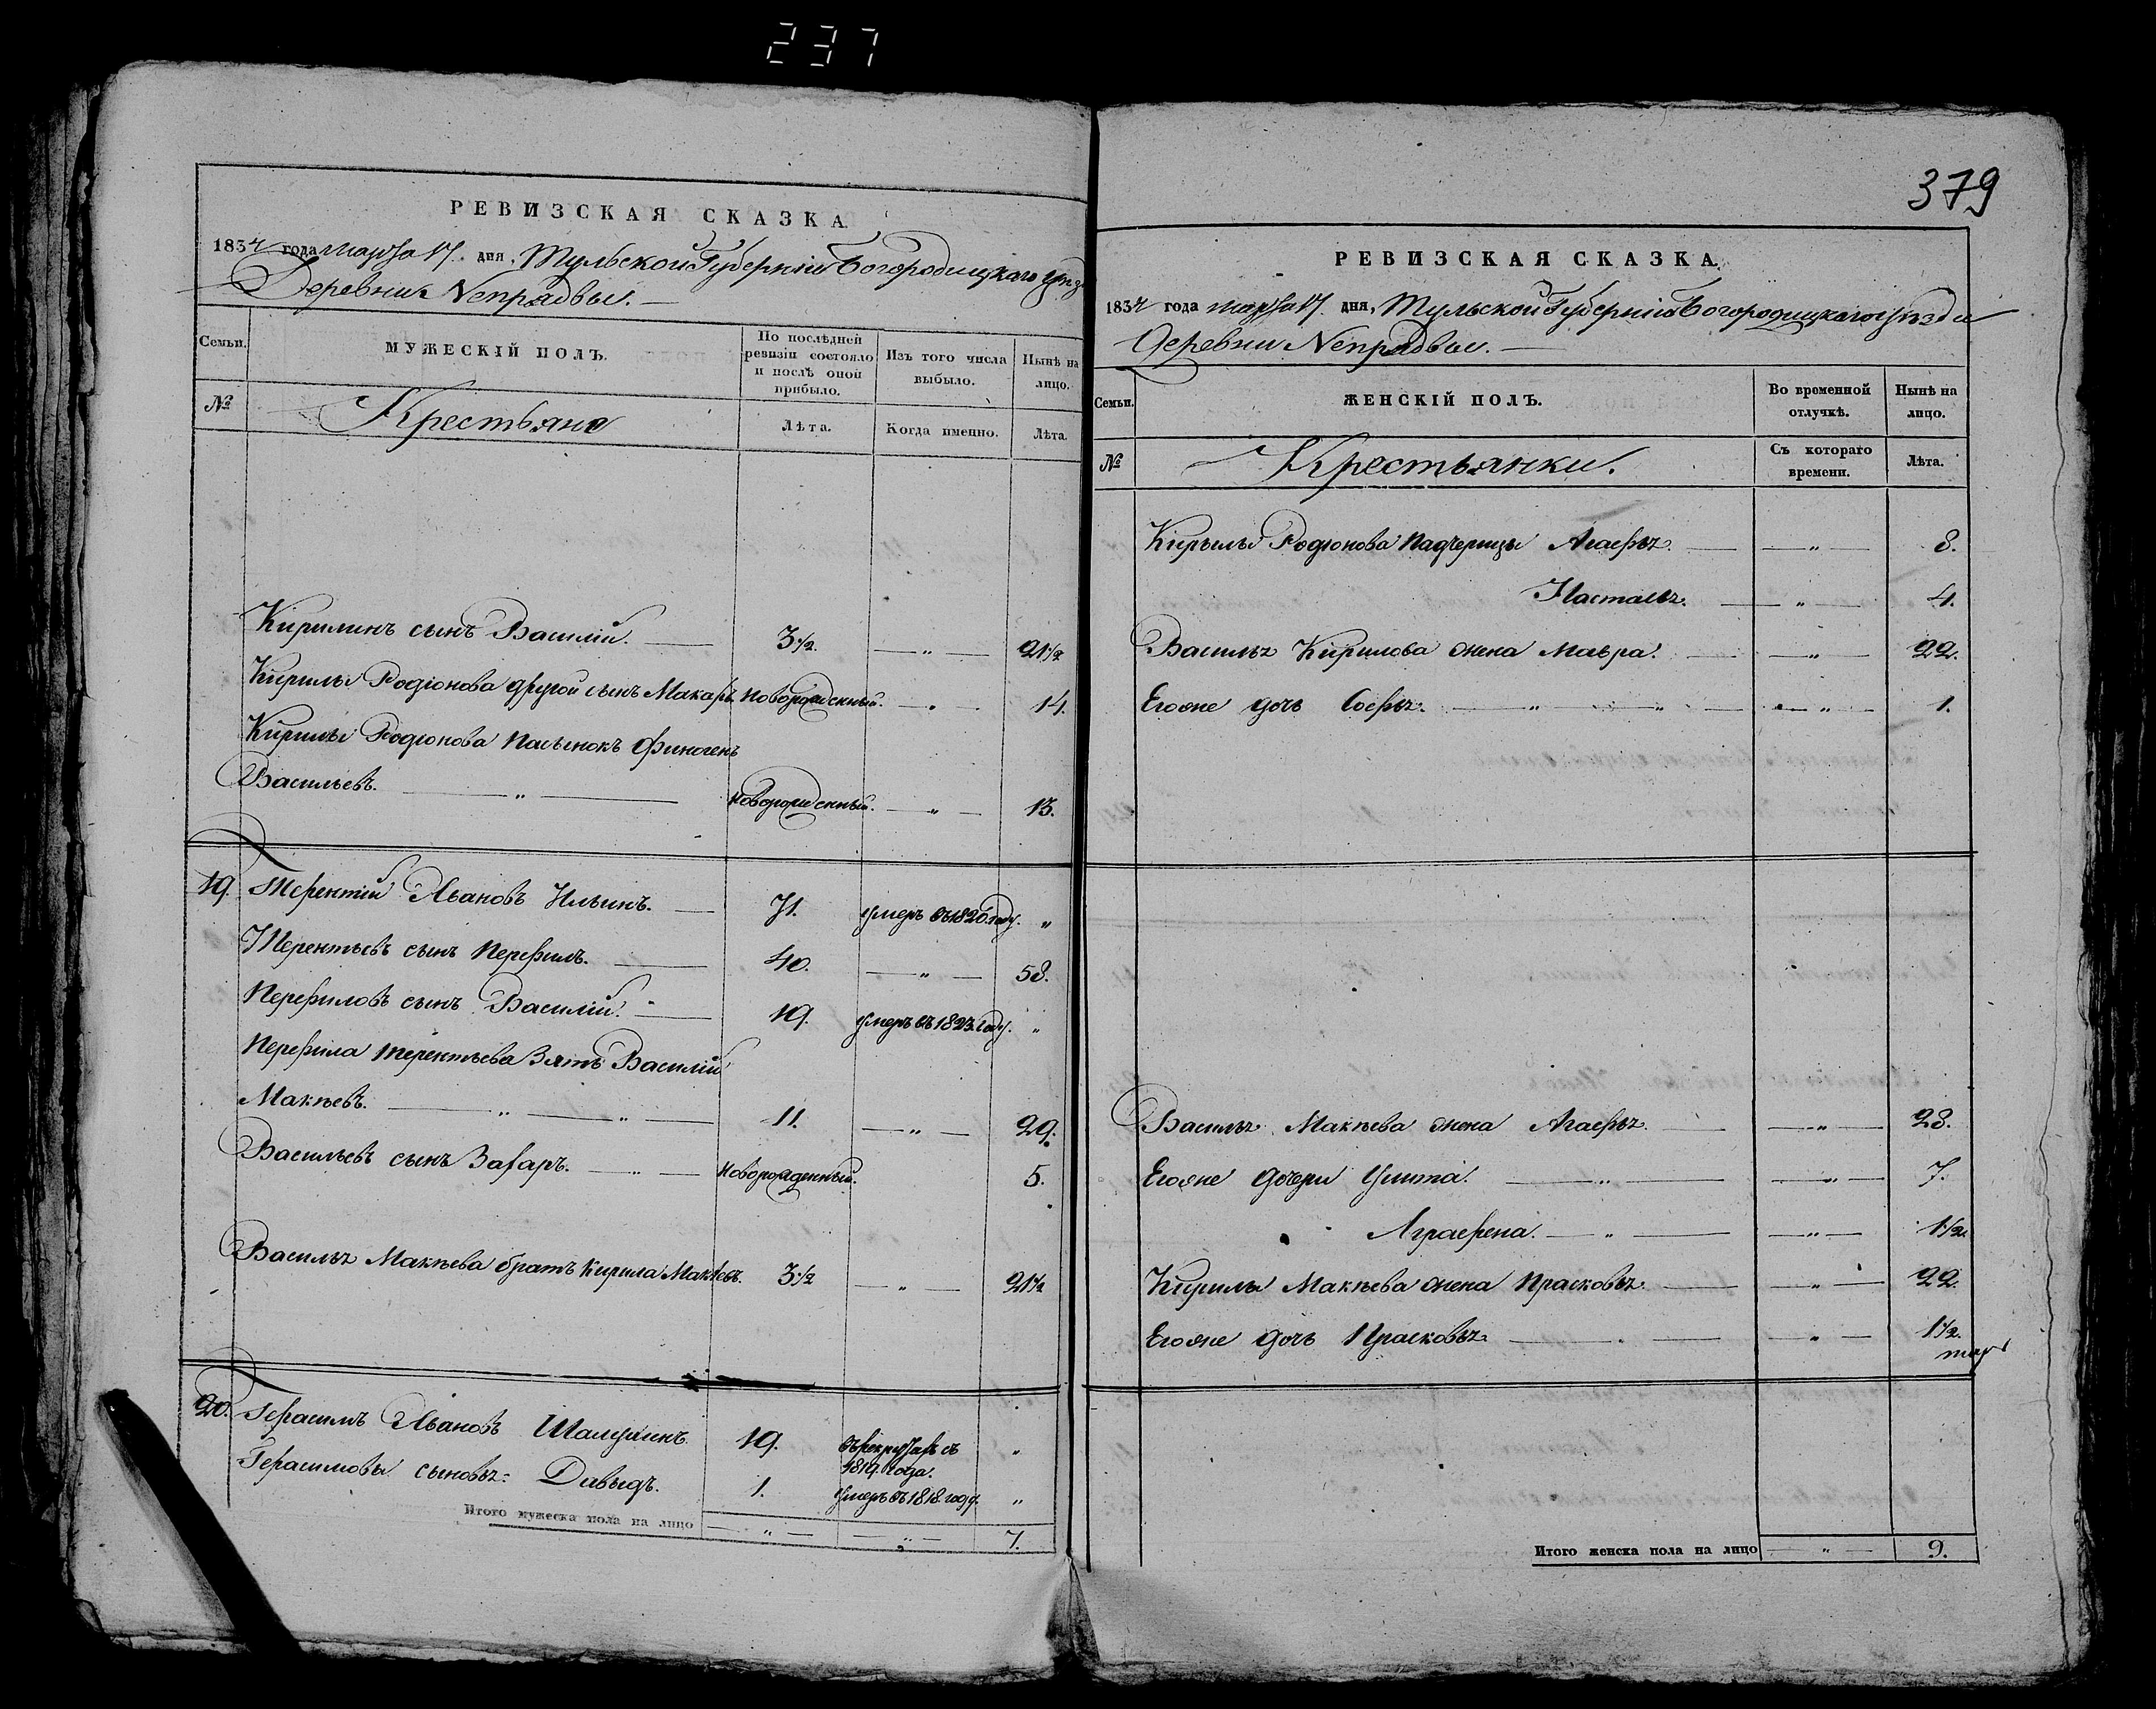 237
379
РЕВИЗСКАЯ СКАЗКА
1834 года марта 17. дня, Тульской Губерніи Богородицкаго уѣзд
Деревни Непрядвы.
Семьи. МУЖЕСКІЙ ПОЛЪ. По послѣдней ревизіи состояло и послѣ оной прибыло. Изъ того числа выбыло. Нынѣ на лицо.
№ Крестьяне Лѣта. Когда именно. Лѣта.
Кирилинъ сынъ Василій. 3 1/2. „ 21 1/2
Кирилы Родіонова другой сынъ Макаръ новорожденный. „ 14.
Кирилы Родіонова пасынокъ Финогенъ
Васильевъ. „ новорожденный. „ 13.
19. Терентій Ивановъ Ильинъ. 71. умеръ въ 1826. году. „
Терентьевъ сынъ Перфилъ. 40. „ 58.
Перфиловъ сынъ Василій. 19. умеръ въ 1823. году. „
Перфила Терентьева зять Василій
Макѣевъ. „ „ 11. „ 29.
Васильевъ сынъ Захаръ. „ новорожденный. 5.
Василья Макѣева братъ Кирила Макѣевъ. 3 1/2 „ 21 1/2
20. Герасимъ Ивановъ 19. въ рекрутахъ съ „
1819. года.
Герасимовы сыновья: Давыдъ. 1. умеръ въ 1818. году. „
Итого мужеска пола на лицо „ „ 7.
РЕВИЗСКАЯ СКАЗКА.
1834 года марта 17. дня, Тульской Губерніи Богородицкаго уѣзда
Деревни Непрядвы.
Семьи. ЖЕНСКІЙ ПОЛЪ. Во временной отлучкѣ. Нынѣ на лицо.
№ Крестьянки. Съ котораго времени. Лѣта.
Кирилы Родіонова падчерицы Агафья. „ 8.
Настасья. „ 4.
Василья Кирилова жена Мавра. „ 22.
Егоже дочь Софья. „ „ „ 1.
Василья Макѣева жена Агафья. „ 28.
Егоже дочери Улита. „ „ 7.
Аграфена. „ „ 1 1/2.
Кирилы Макѣева жена Прасковья. „ 22.
Егоже дочь Прасковья. „ 1 1/2.
Итого женска пола на лицо „ 9.